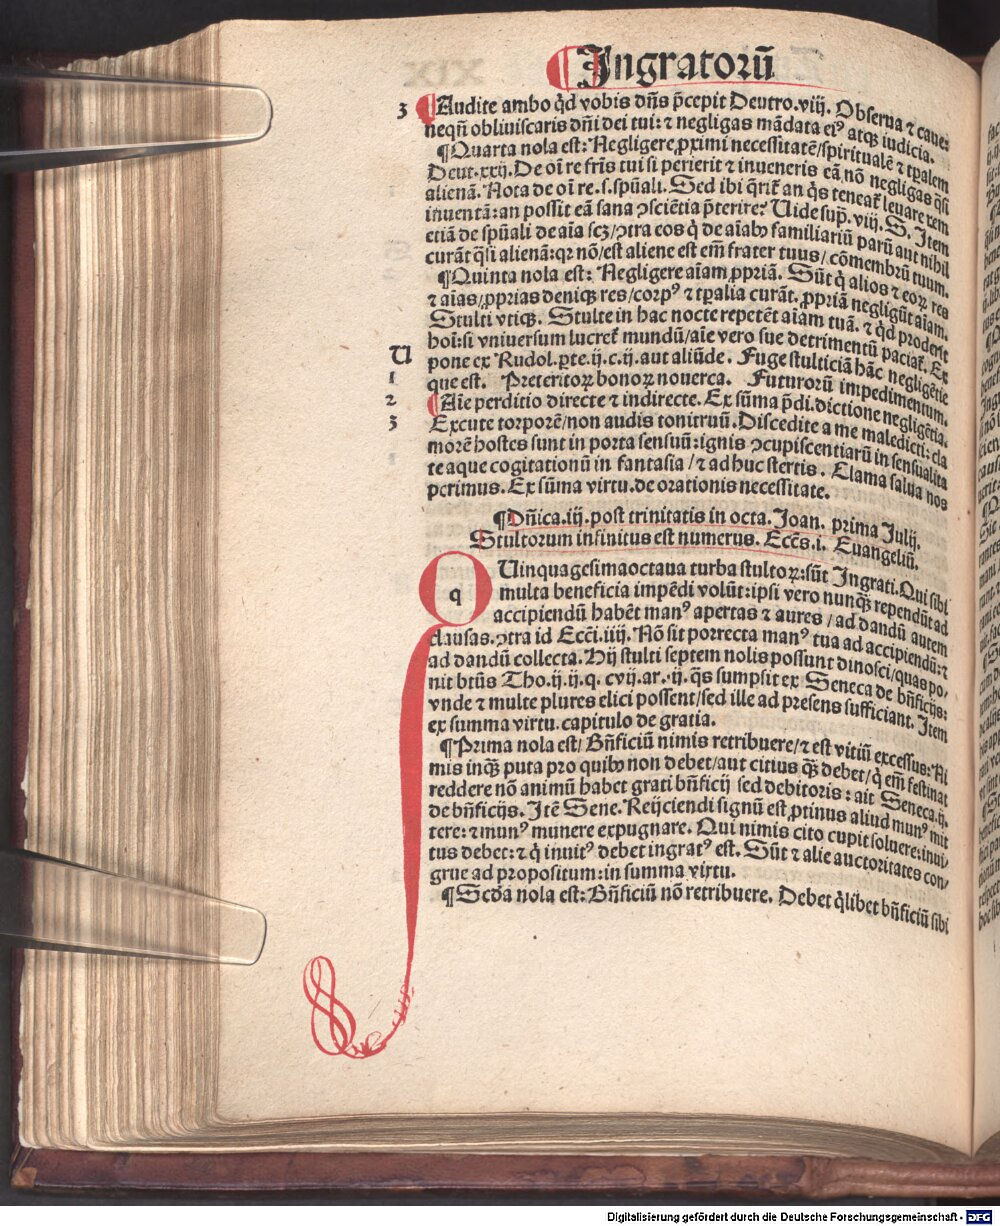 ¶Ingratorū
3 ¶Audite ambo q̄d vobis dn̄s p̄cepit Deutro.viij. Obserua ⁊ caue:
neqn̄ obliuiscaris dn̄i dei tui: ⁊ negligas mādata eiꝰ atqꝫ iudicia.
¶Quarta nola est: Negligere ꝓximi necessitatē/spiritualē ⁊ tꝑalem
Deut.xxij. De oī re fr̄is tui si perierit ⁊ inueneris eā nō negligas q̄si
alienā. Nota de oī re.s.spūali. Sed ibi q̄rit̄ an q̄s teneat̄ leuare rem
inuentā: an possit eā sana ꝯsciētia p̄terire? Uide sup̄. viij. S. Item
etiā de spūali de aīa scꝫ/ꝯtra eos q̄ de aīabꝰ familiariū parū aut nihil
curāt q̄si alienā: qꝛ nō/est aliene est em̄ frater tuus/cōmembrū tuum.
¶Quinta nola est: Negligere aīam ꝓpriā. Sūt q̄ alios ⁊ eoꝝ res
⁊ aīas/ꝓprias deniqꝫ res/corpꝰ ⁊ tꝑalia curāt. ꝓpriā negligūt aīam.
Stulti vtiqꝫ. Stulte in hac nocte repetēt aīam tuā. ⁊ q̄d prodest
hoī: si vniuersum lucret̄ mundū/aīe vero sue detrimentū paciat̄. Ex
U pone ex Rudol.ꝑte.ij.c.ij.aut aliūde. Fuge stulticiā hāc negligētie
1 que est. Preteritoꝝ bonoꝝ nouerca. Futurorū impedimentum.
2 ¶Aīe perditio directe ⁊ indirecte. Ex sūma p̄di.dictione negligētia.
3 Excute torporē/non audis tonitruū. Discedite a me maledicti: cla
morē hostes sunt in porta sensuū: ignis ꝯcupiscentiarū in sensualita
te aque cogitationū in fantasia/⁊ adhuc stertis. Clama salua nos
perimus. Ex sūma virtu.de orationis necessitate.
¶Dn̄ica.iij.post trinitatis in octa. Joan. prima Julij.
Stultorum infinitus est numerus. Ecc̄s.i. Euangeliū.
q Uinquagesimaoctaua turba stultoꝝ: sūt Ingrati. Qui sibi
multa beneficia impēdi volūt: ipsi vero nunqꝫ̄ rependūt ad
accipiendū habēt manꝰ apertas ⁊ aures/ad dandū autem
clausas. ꝯtra id Ecc̄i.iiij. Nō sit porrecta manꝰ tua ad accipiendū: ⁊
ad dandū collecta. Hij stulti septem nolis possunt dinosci/quas po,
nit btūs Tho.ij.ij.q. cvij.ar.ij. q̄s sumpsit ex Seneca de bn̄ficijs:
vnde ⁊ multe plures elici possent/sed ille ad presens sufficiant. Item
ex summa virtu.capitulo de gratia.
¶Prima nola est/Bn̄ficiū nimis retribuere/⁊ est vitiū excessus: Ni
mis inqꝫ̄ puta pro quibꝰ non debet/aut citius qꝫ̄ debet/q̄ em̄ festinat
reddere nō animū habet grati bn̄ficij sed debitoris: ait Seneca.ij.
de bn̄ficijs. Itē Sene. Reijciendi signū est ꝓtinus aliud munꝰ mit
tere: ⁊ munꝰ munere expugnare. Qui nimis cito cupit soluere: inui,
tus debet: ⁊ q̄ inuitꝰ debet ingratꝰ est. Sūt ⁊ alie auctoritates con,
grue ad propositum: in summa virtu.
¶Scd̄a nola est: Bn̄ficiū nō retribuere. Debet q̄libet bn̄ficiū sibi
Digitalisierung gefördert durch die Deutsche Forschungsgemeinschaft - DFG